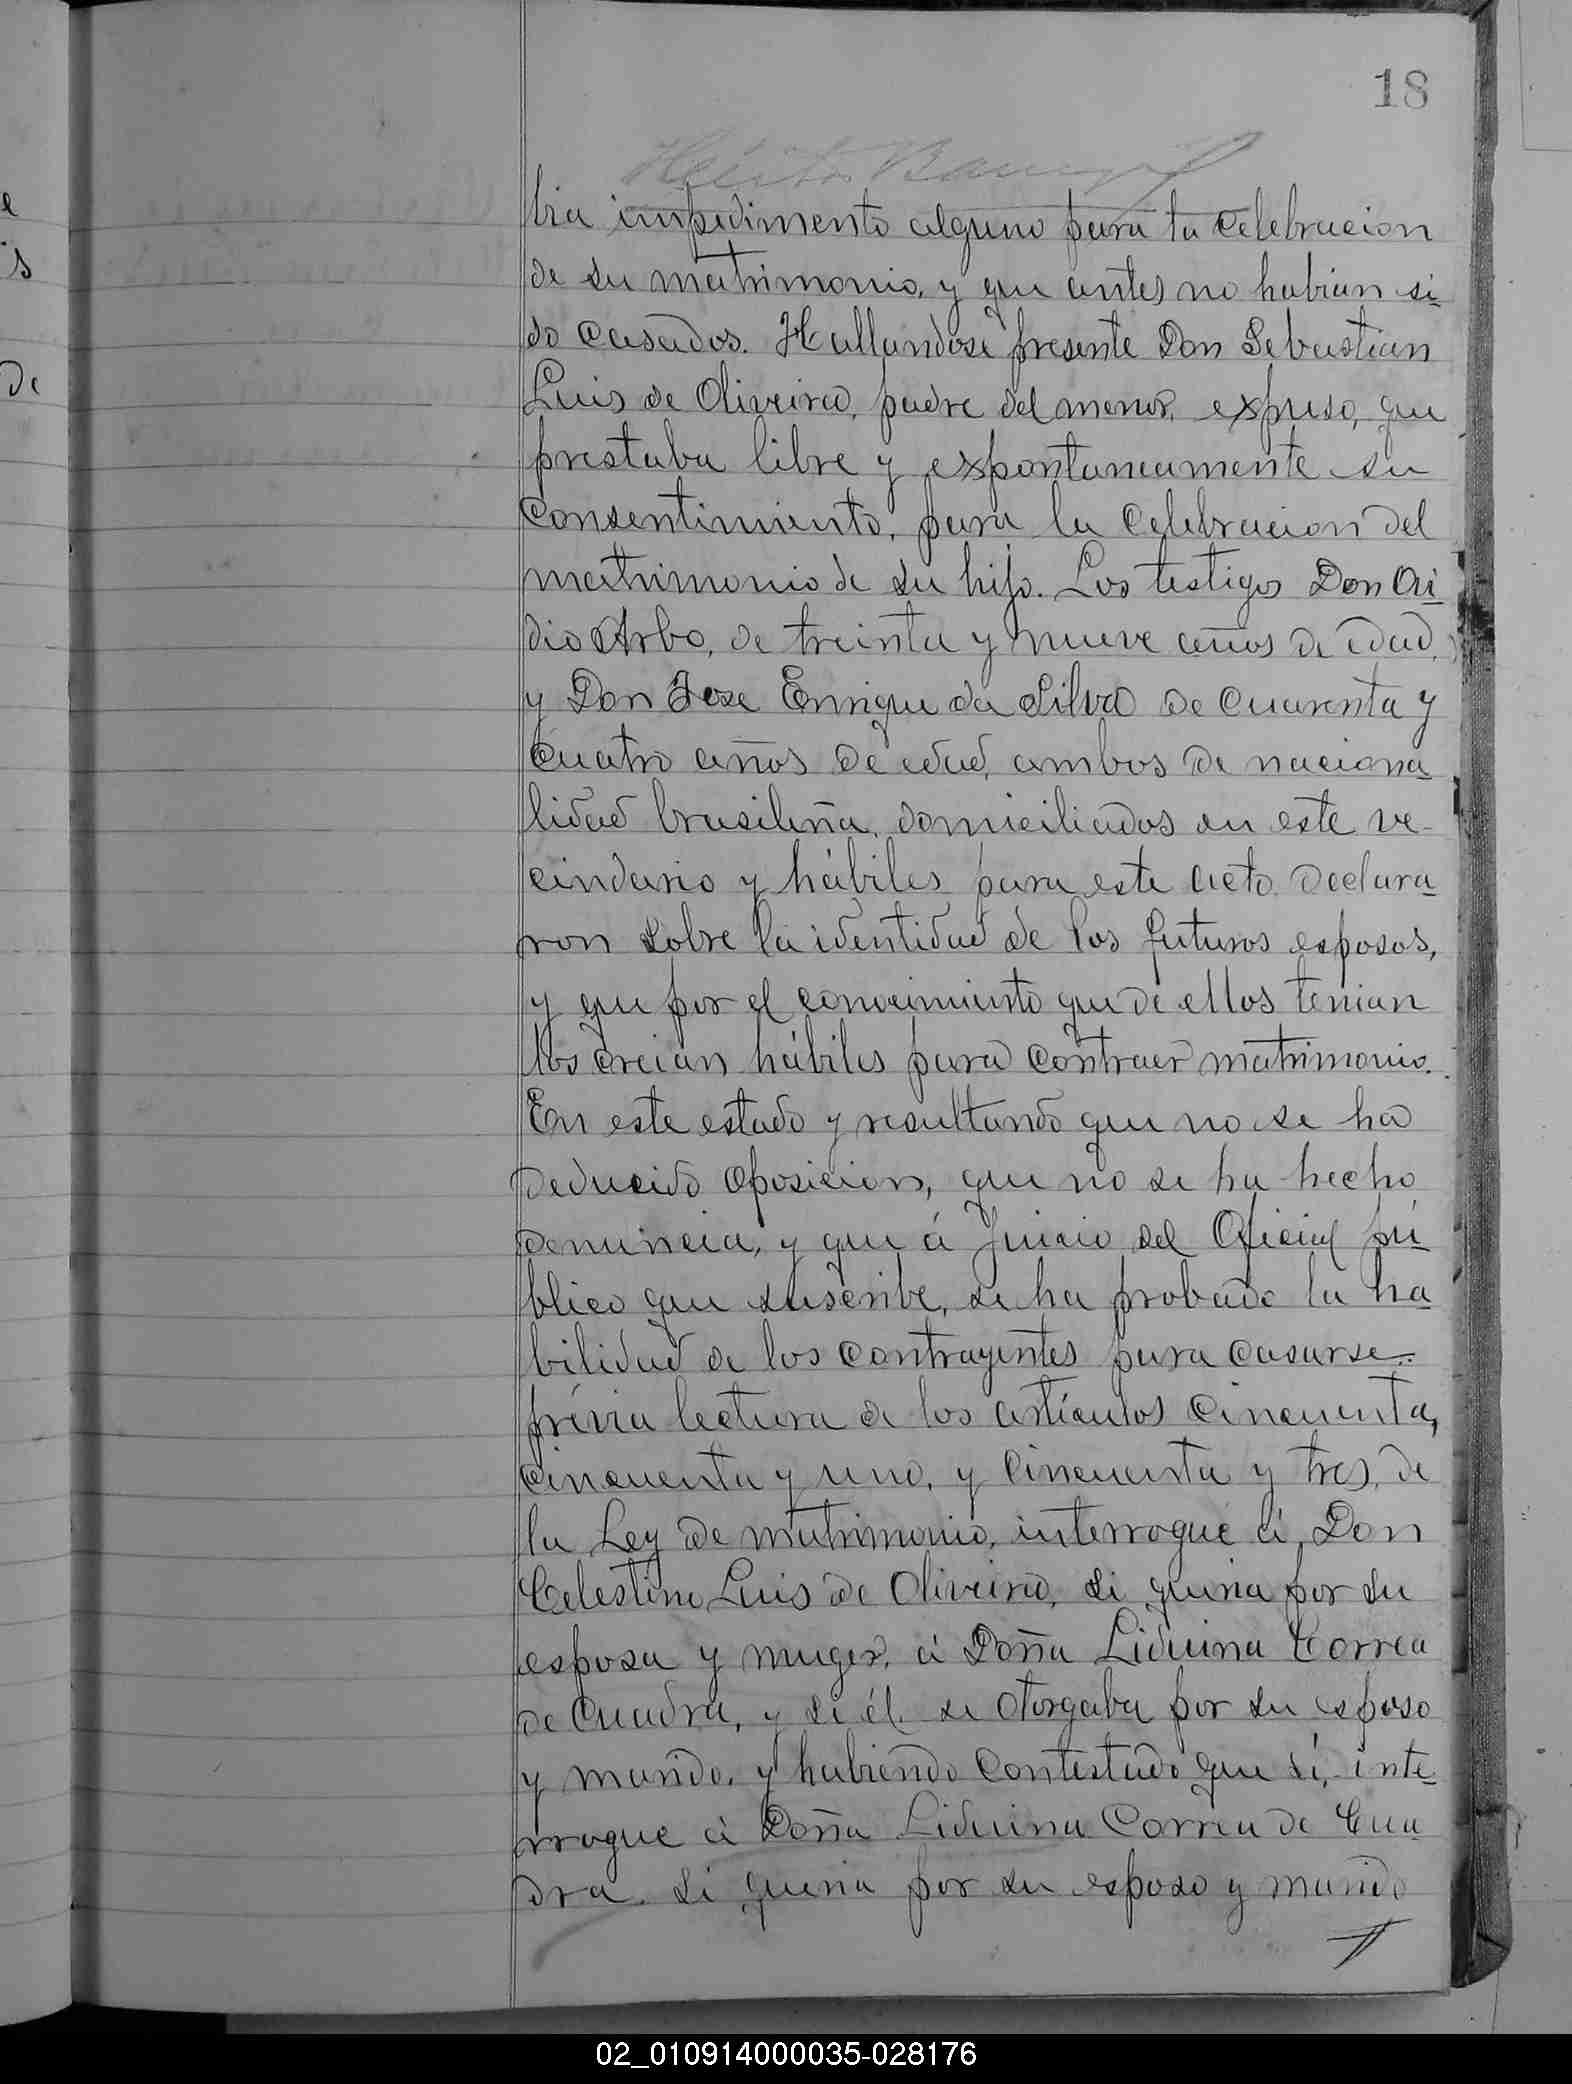 18
bia impedimento alguno para la celebracion
de su matrimonio, y que antes no habian si-
do casados. Hallandose presente Don Sebastian
Luis de Oliveira, padre del menor, expuso, que
prestaba libre y expontaneamente su
consentimiento, para la celebracion del
matrimonio de su hijo. Los testigos Don Ovi-
dio Arbo, de treinta y nueve años de edad,
y Don Jose Enrique da Silva de cuarenta y
cuatro años de edad, ambos de naciona-
lidad brasileña, domiciliados en este ve-
cindario y hábiles para este acto declara-
ron sobre la identidad de los futuros esposos,
y que por el conocimiento que de ellos tenian
los creian hábiles para contraer matrimonio.
En este estado y resultando que no se ha
deducido oposicion, que no se ha hecho
denuncia, y que á juicio del Oficial pú-
blico que suscribe, se ha probado la ha-
bilidad de los contrayentes para casarse..
prévia lectura de los artículos cincuenta,
cincuenta y uno, y cincuenta y tres, de
la Ley de matrimonio, interrogué á Don
Celestino Luis de Oliveira, si queria por su
esposa y muger, á Doña Liduina Correa
de Cuadra, y si él se otorgaba por su esposo
y marido, y habiendo contestado que si, inte-
rrogue á Doña Liduina Correa de Cua-
dra. si queria por su esposo y marido
e
is
de
02_010914000035-028176